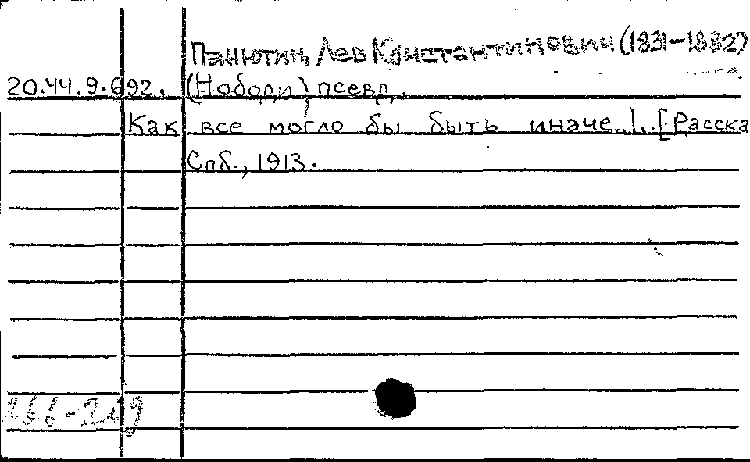 Панютин, Лев Константинович (1831-1882)
20.44.9.692. (Нободи) псевд.
Как все могло бы быть иначе..!.. [Расска
Спб., 1913.